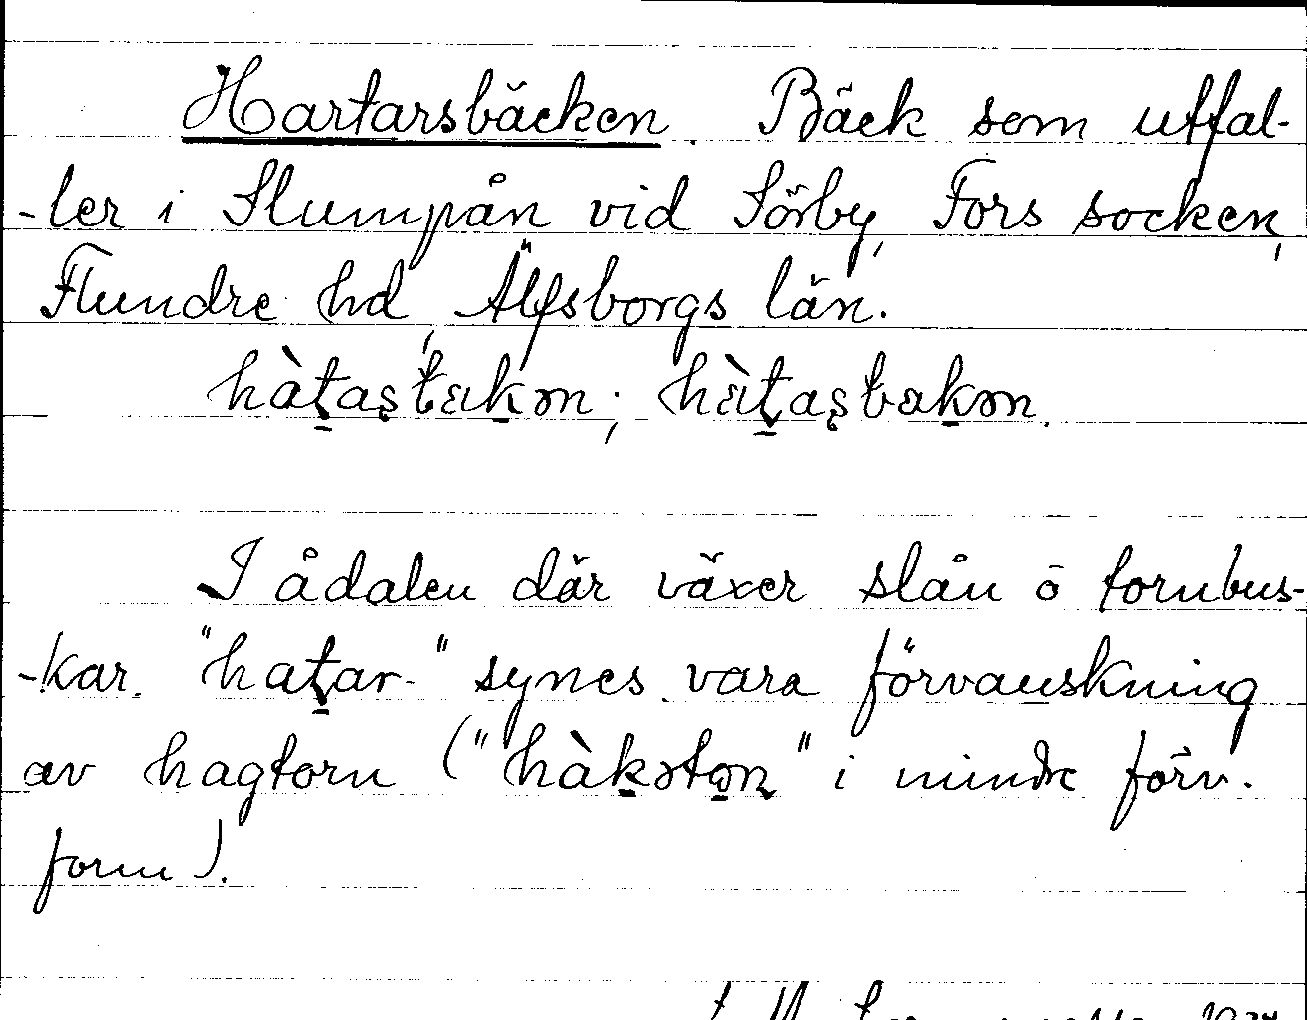 Hartarsbäcken. Bäck som utfal-
-ler i Slumpån vid Sörby, Fors socken,
Flundre hd, Älfsborgs län.
hàṯas̨bäḵən; hàṯas̨bäḵən.
I ådalen där växer slån ō tornbus-
-kar. "haṯar-" synes vara förvanskning
av hagtorn ("hàḵəto̱n̨" i mindre förv.
form).